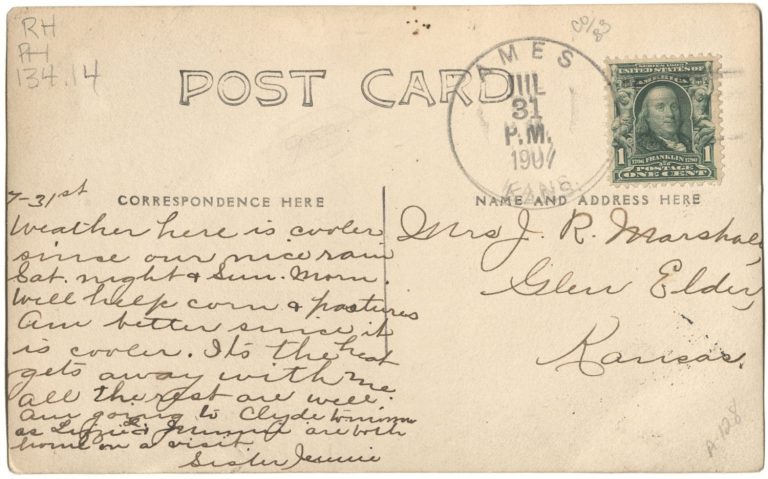 RH
PH
134.14
POST CARD
AMES
JUL
31
P.M.
1907
KANS.
SERIES 1902
UNITED STATES OF
AMERICA
1 1706 FRANKLIN 1790 1
POSTAGE
ONE CENT
7-31st
CORRESPONDENCE HERE
NAME AND ADDRESS HERE
Weather here is cooler
since our nice rain
Sat. night & Sun. Morn.
Will help corn & pastures
Am better since it
is cooler. It's the heat
gets away with me
all the rest are well.
am going to Clyde tomorrow
as Lizzie & Jimmie are both
home on a visit
Sister Jennie
Mrs J. R. Marshall,
Glen Elder,
Kansas.
A.128